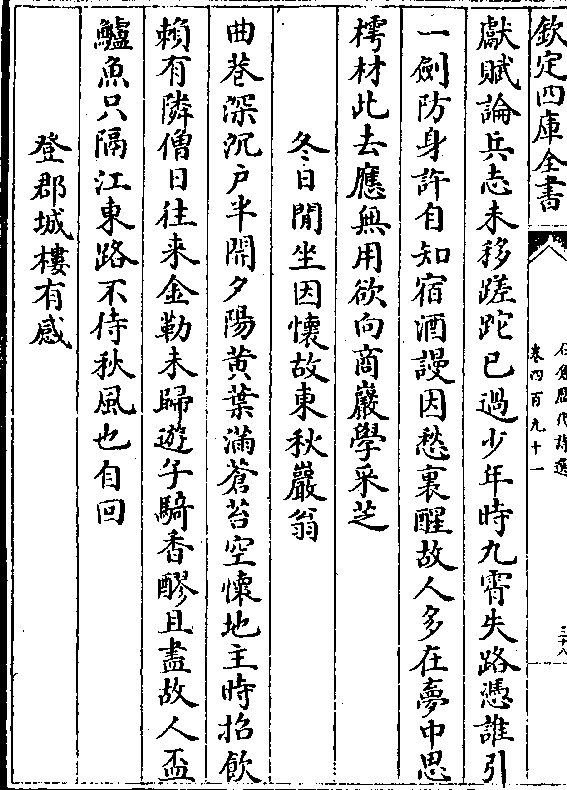 欽定四庫全書
石倉歷代詩選
卷四百九十一
三十八
獻賦論兵志未移蹉跎已過少年時九霄失路憑誰引
一劍防身許自知宿酒謾因愁裏醒故人多在夢中思
樗材此去應無用欲向商巖學采芝
冬日閒坐因懷故東秋巖翁
曲巷深沉户半開夕陽黄葉滿蒼苔空懷地主時招飲
賴有隣僧日往来金勒未歸遊子騎香醪且盡故人盃
鱸魚只隔江東路不待秋風也自回
登郡城樓有感